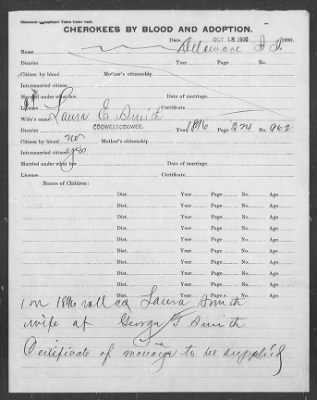 CHEROKEES BY BLOOD AND ADOPTION.
Date OCT 18 1900 1900.
Name Delaware I. T.
District Year Page No.
Citizen by blood Mother's citizenship
Intermarried citizen
Married under what law
License Certificate
Wife's name Laura E. Smith
District COOWEESCOOWEE. Year 1896 Page 324 No. 962
Citizen by blood no Mother's citizenship
Intermarried citizen yes
Married under what law
License Certificate
Names of Children:
Dist. Year Page No. Age
Dist. Year Page No. Age
Dist. Year Page No. Age
Dist. Year Page No. Age
Dist. Year Page No. Age
Dist. Year Page No. Age
Dist. Year Page No. Age
Dist. Year Page No. Age
Dist. Year Page No. Age
Dist. Year Page No. Age
1 on 1896 roll as Laura Smith
wife of George T Smith
Certificate of marriage to be supplied